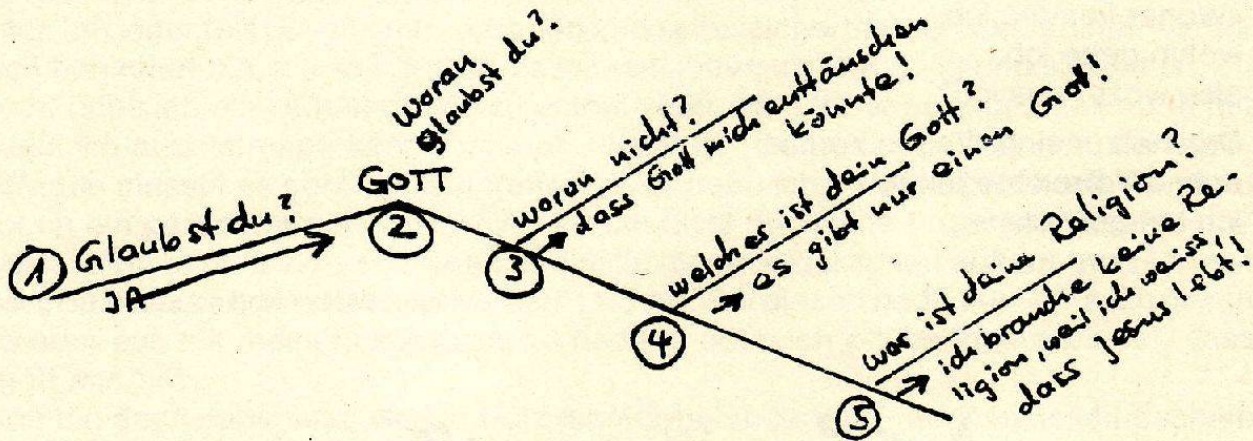 ① Glaubst du?
JA
② GOTT
woran
glaubst du?
③ woran nicht?
dass Gott mich enttäuschen
könnte!
④ welches ist dein Gott?
es gibt nur einen Gott!
⑤ was ist deine Religion?
ich brauche keine Re-
ligion, weil ich weiss
dass Jesus lebt!